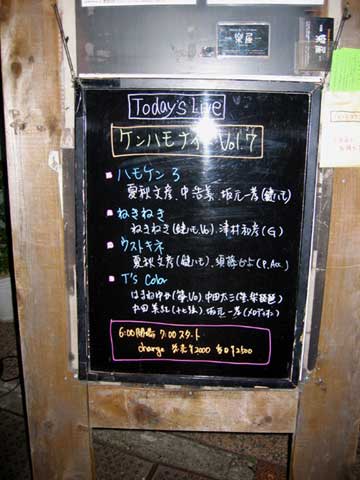 Today's Live
ケンハモナイト Vol.7
ハモケン3
夏秋文彦、中浩美、坂元一孝(鍵ハモ)
ねきねき
ねきねき(鍵ハモ, Vo)、津村和彦(G)
ウストキネ
夏秋文彦(鍵ハモ)、須藤(P, Acc)
T's Cobo
はまねゆか(箏, Vo)中田太三(箏・琵琶)
(十七弦)、坂元一孝(メロディオン)
6:00開場 7:00スタート
charge 前売¥2000 当日¥2500
楽屋